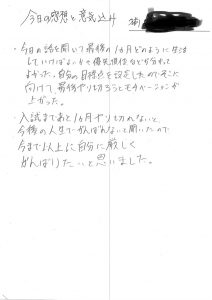 今日の感想と意気込み
・今日の話を聞いて最後の1ヵ月どのように生活
していけばよいかや優先順位などが分かって
よかった。自分の目標点を設定したのでそこに
向けて、最後やり切ろうとモチベーションが
上がった。
・入試まであと1ヵ月やり切れないと
今後の人生でがんばれないと聞いたので
今まで以上に自分に厳しく
がんばりたいと思いました。